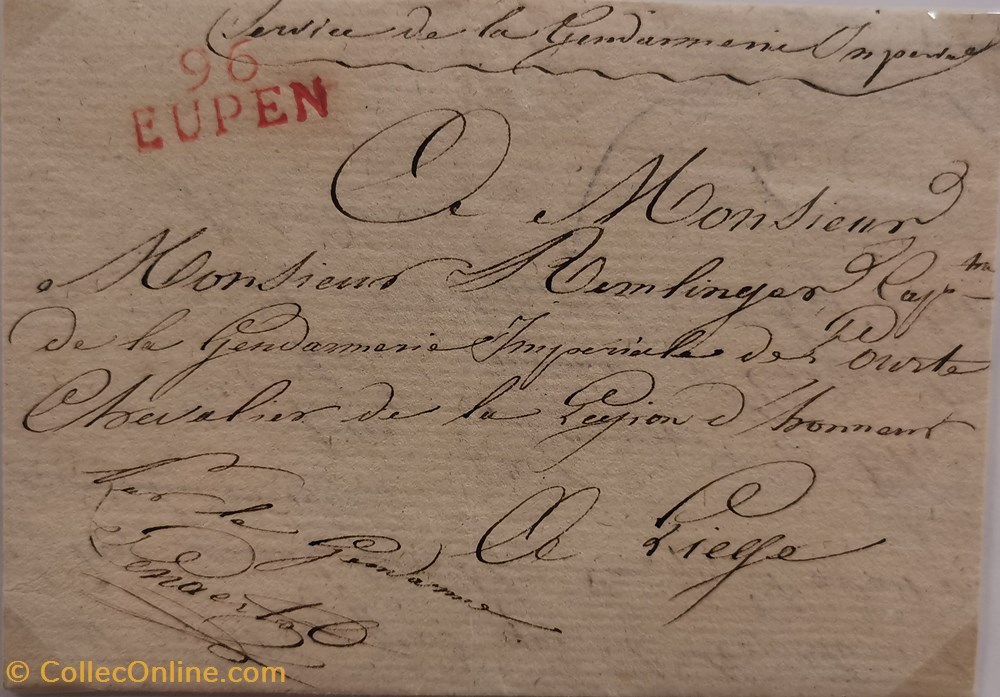 Service de la Gendarmerie Imperial
96
EUPEN
A Monsieur
Monsieur Remlinger Capne
de la Gendarmerie Imperiale de L'Ourte
Chevalier de la Legion d'honneur
A Liege
Par le Gendarme
© CollecOnline.com